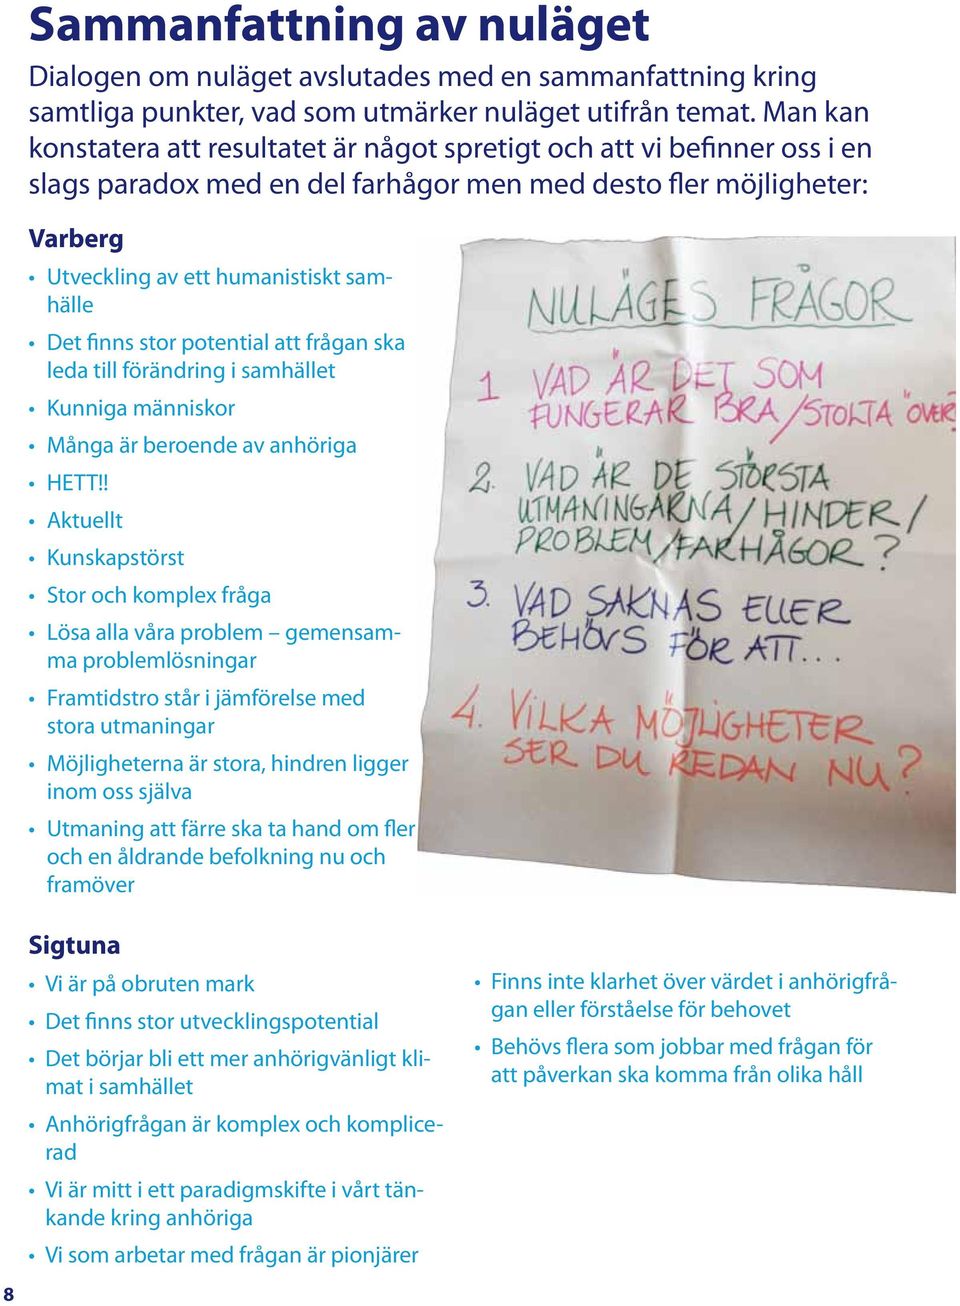 Sammanfattning av nuläget
Dialogen om nuläget avslutades med en sammanfattning kring
samtliga punkter, vad som utmärker nuläget utifrån temat. Man kan
konstatera att resultatet är något spretigt och att vi befinner oss i en
slags paradox med en del farhågor men med desto fler möjligheter:
Varberg
• Utveckling av ett humanistiskt sam-
hälle
• Det finns stor potential att frågan ska
leda till förändring i samhället
• Kunniga människor
• Många är beroende av anhöriga
• HETT!!
• Aktuellt
• Kunskapstörst
• Stor och komplex fråga
• Lösa alla våra problem – gemensam-
ma problemlösningar
• Framtidstro står i jämförelse med
stora utmaningar
• Möjligheterna är stora, hindren ligger
inom oss själva
• Utmaning att färre ska ta hand om fler
och en åldrande befolkning nu och
framöver
NULÄGES FRÅGOR
1 VAD ÄR DET SOM
FUNGERAR BRA/STOLTA ÖVER
2. VAD ÄR DE STÖRSTA
UTMANINGARNA/HINDER/
PROBLEM/FARHÅGOR?
3. VAD SAKNAS ELLER
BEHÖVS FÖR ATT...
4. VILKA MÖJLIGHETER
SER DU REDAN NU?
Sigtuna
• Vi är på obruten mark
• Det finns stor utvecklingspotential
• Det börjar bli ett mer anhörigvänligt kli-
mat i samhället
• Anhörigfrågan är komplex och komplice-
rad
• Vi är mitt i ett paradigmskifte i vårt tän-
kande kring anhöriga
• Vi som arbetar med frågan är pionjärer
• Finns inte klarhet över värdet i anhörigfrå-
gan eller förståelse för behovet
• Behövs flera som jobbar med frågan för
att påverkan ska komma från olika håll
8